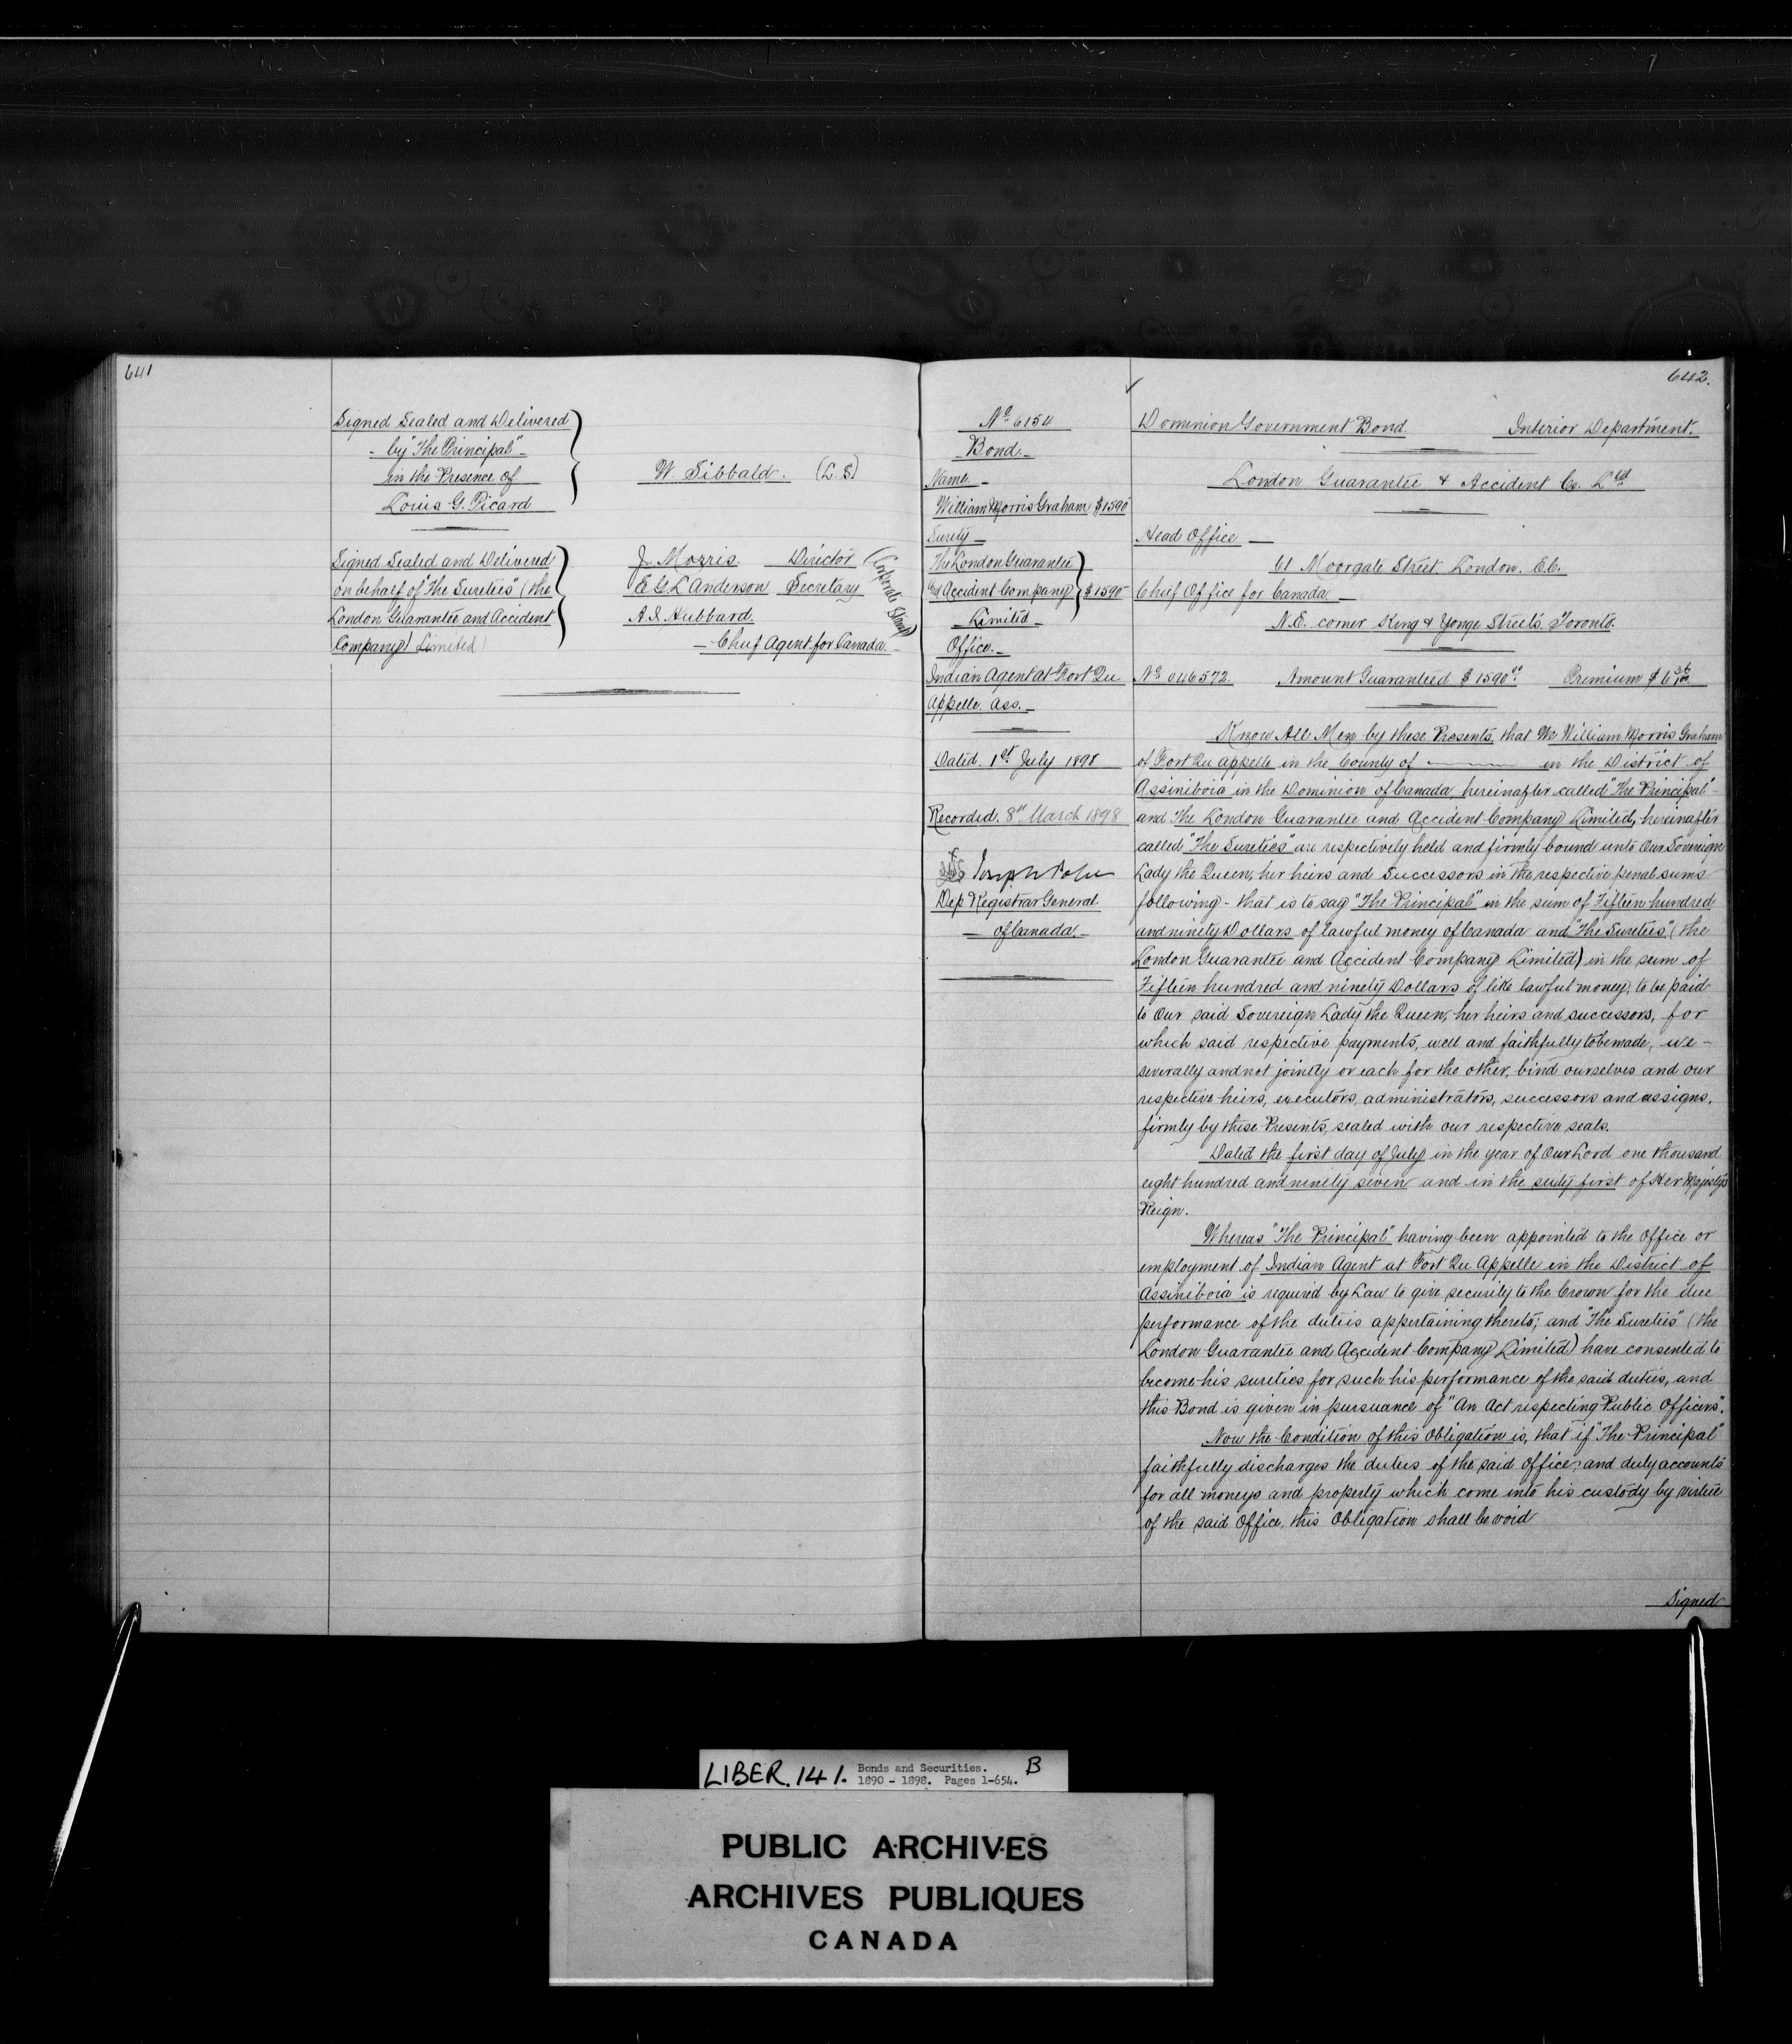 641
Signed Sealed and Delivered
- by "The Principal" -
in the Presence of
Louis G. Picard
W. Sibbald. (L.S)
Signed Sealed and Delivered
on behalf of "The Sureties" (the
London Guarantee and Accident
Company) Limited)
J. Morris. Director
E G L Anderson Secretary
A. D. Hubbard.
- Chief Agent for Canada. -
(Corporate Stamp)
No 6154
Bond. -
Name. -
William Morris Graham $1590
Surety -
The London Guarantee
and Accident Company $1590
Limited -
Office. -
Indian Agent at Fort Qu
Appelle. Ass. -
Dated. 1st July 1898
Recorded. 8th March 1898
Joseph Pope
Dep Registrar General
- of Canada. -
642.
Dominion Government Bond. Interior Department.
London Guarantee & Accident Co. Ltd
Head Office -
61 Moorgate Street London. E.C.
Chief Office for Canada -
N.E. corner King & Yonge Streets. Toronto.
No 046572 Amount Guaranteed $1590.00 Premium $6 36/100
Know All Men by these Presents, that We William Morris Graham
of Fort Qu Appelle in the County of ——— in the District of
Assiniboia in the Dominion of Canada, hereinafter called "The Principal" -
and The London Guarantee and Accident Company Limited, hereinafter
called "The Sureties" are respectively held and firmly bound unto Our Sovereign
Lady the Queen, her heirs and Successors in the respective penal sums
following - that is to say "The Principal" in the sum of Fifteen hundred
and ninety Dollars of lawful money of Canada and "The Sureties" (the
London Guarantee and Accident Company Limited) in the sum of
Fifteen hundred and ninety Dollars of like lawful money, to be paid
to Our said Sovereign Lady the Queen, her heirs and successors, for
which said respective payments, well and faithfully to be made, we -
severally and not jointly or each for the other, bind ourselves and our
respective heirs, executors, administrators, successors and assigns.
firmly by these Presents, sealed with our respective seals.
Dated the first day of July in the year of Our Lord one thousand
eight hundred and ninety seven and in the sixty first of Her Majesty's
Reign.
Whereas "The Principal" having been appointed to the Office or
employment of Indian Agent at Fort Qu Appelle in the District of
Assiniboia is required by Law to give security to the Crown for the due
performance of the duties appertaining thereto; and "The Sureties" (the
London Guarantee and Accident Company Limited) have consented to
become his sureties for such his performance of the said duties, and
this Bond is given in pursuance of "An Act respecting Public Officers".
Now the Condition of this Obligation is, that if "The Principal"
faithfully discharges the duties of the said office, and duly accounts
for all moneys and property which come into his custody by virtue
of the said Office, this Obligation shall be void
Signed
LIBER. 141. Bonds and Securities. B
1890 - 1898. Pages 1-654.
PUBLIC ARCHIVES
ARCHIVES PUBLIQUES
CANADA